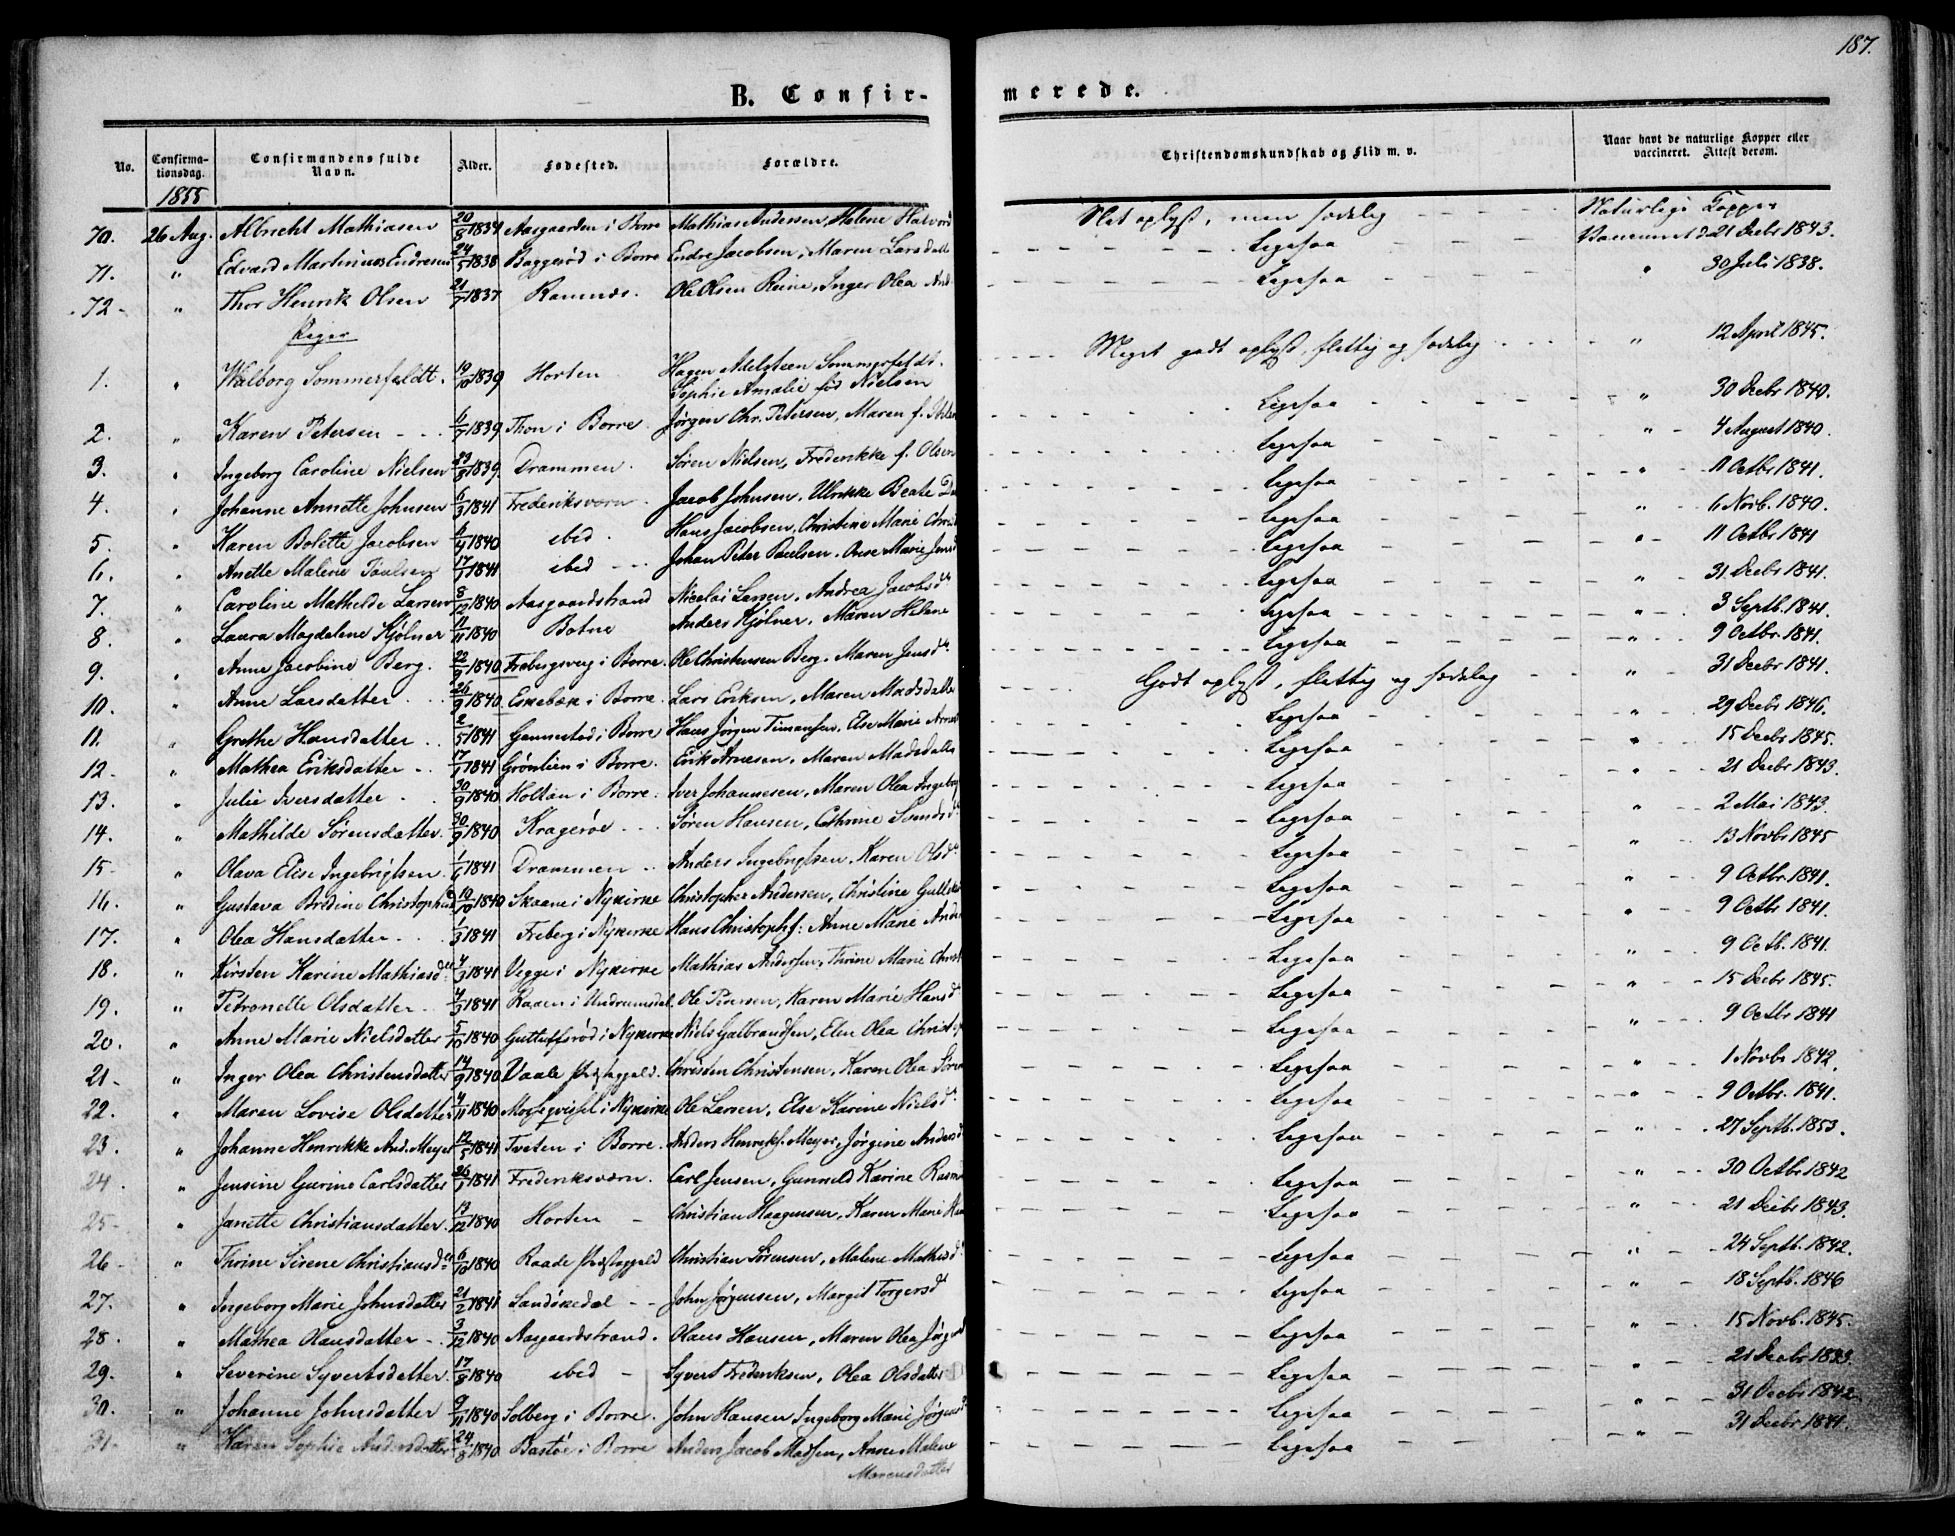 187.
B. Confirmerede.
No. Confirmationsdag. Confirmandens fulde Navn. Alder. Fødested. Forældre. Christendomskundskab og Flid m. v. Naar havt de naturlige Kopper eller vaccineret. Attest derom.
1855
70. 26 Aug. Albrecht Mathiasen 20/8 1834 Aasgaarden i Borre Mathias Andersen, Helene Halvord Slet oplyst, men sædelig Naturlige Kopper
71. " Edvard Martinius Endresen 24/5 1838 Baggerød i Borre Endre Jacobsen, Maren Larsdatte Ligesaa Vaccineret d. 21 Decbr 1843.
72 " Thor Henrik Olsen 21/7 1837 Ramnæs. Ole Olsen Reine, Inger Olea And Ligesaa " 30 Juli 1838.
Piger
1. " Walborg Sommerfeldt. 19/10 1839 Horten Hagen Adelsteen Sommerfeldt. Sophie Amalie fød Nielsen Meget godt oplyst, flittig og sædelig " 12 April 1845.
2. " Karen Petersen 6/7 1839 Thon i Borre. Jørgen Chr. Petersen, Maren f. Ligesaa " 30 Decbr 1840.
3. " Ingeborg Caroline Nielsen 23/8 1839. Drammen. Søren Nielsen, Frederikke f. Olsen Ligesaa " 4 August 1840.
4. " Johanne Annette Johnsen 6/3 1841 Frederiksværn. Jacob Johnsen, Ulrikke Beate Ligesaa " 11 Octbr 1841.
5. " Karen Bolette Jacobsen 6/4 1840 ibid. Hans Jacobsen, Christine Marie Ligesaa " 6 Novb. 1840.
6. " Anette Malene Paulsen 17/1 1841 ibid Johan Peter Paulsen, Anne Marie Jensd Ligesaa " 11 Octbr 1841
7. " Caroline Mathilde Larsen 8/12 1840 Aasgaardstrand Nicolai Larsen, Andrea Jacobsd Ligesaa " 31 Decbr 1841.
8. " Laura Magdalene Kjølner 11/11 1840 Botne Anders Kjølner, Maren Helene Ligesaa " 3 Septb. 1841.
9. " Anne Jacobine Berg. 22/9 1840 Frebergsveg i Borre. Ole Christensen Berg. Maren Jensd Ligesaa " 9 Octbr. 1841.
10. " Anne Larsdatter 26/9 1840. Eskebæk i Borre. Lars Eriksen, Maren Madsdatter Godt oplyst, flittig og sædelig " 31 Decbr 1841.
11. " Grethe Hansdatter 2/5 1841 Gannestad i Borre Hans Jørgen Timansen, Else Marie Ligesaa " 29 Decbr 1846.
12. " Mathea Eriksdatter 17/1 1841 Grønlien i Borre. Erik Arnesen, Maren Madsdatte Ligesaa " 15 Decbr 1845.
13. " Julie Iversdatter 30/9 1840 Holtan i Borre. Iver Johannesen, Maren Olea Ingebrg Ligesaa " 21 Decbr 1843.
14. " Mathilde Sørensdatter. 30/9 1840 Kragerøe Søren Hansen, Cathrine Svends Ligesaa " 2 Mai 1843.
15 " Olava Elise Ingebrigtsen 1/4 1841 Drammen Anders Ingebrigtsen, Karen Olsd Ligesaa " 13 Novbr 1845
16. " Gustava Bredine Christophsd 10/10 1840 Skaane i Nykirke Christopher Andersen, Christine Ligesaa " 9 Octbr. 1841.
17. " Olea Hansdatter 1/3 1841 Freberg i Nykirke Hans Christophf: Anne Marie Ande Ligesaa " 9 Octbr 1841.
18. " Kirsten Karine Mathiasd 4/3 1841 Vegge i Nykirke Mathias Andersen, Thrine Marie Christ Ligesaa " 9 Octb. 1841.
19. " Petronelle Olsdatter 4/3 1841 Raaen i Undrumsdal. Ole Petersen, Karen Marie Hansd Ligesaa " 15 Decbr 1845.
20. " Anne Marie Nielsdatter 5/10 1840 Guttufsrød i Nykirke Niels Gulbrandsen, Elen Olea Christ Ligesaa " 9 Octbr 1841
21 " Inger Olea Christensdatter 14/9 1840. Vaale Præstegjeld. Christen Christensen, Karen Olea Søren Ligesaa " 1 Novbr 1842.
22. " Maren Lovise Olsdatter 4/11 1840 Mosseqvistel i Nykirke Ole Larsen, Else Karine Nielsd Ligesaa " 9 Octbr. 1841.
23. " Johanne Henrikke And. Meyer 12/5 1841 Tveten i Borre. Anders Henrikf. Meyer, Jørgine Andersd Ligesaa " 27 Septb. 1853.
24. " Jensine Gurine Carlsdatter 26/1 1841 Frederiksværn. Carl Jensen, Gunnild Karine Rasm Ligesaa " 30 Octbr 1842
25 " Janette Christiansdatter. 13/12 1840 Horten Christian Haagensen, Karen Marie Ligesaa " 21 Decbr 1843.
26 " Thrine Sirene Christiansd 6/10 1840 Raade Præstegjeld Christian Sørensen, Malene Mathisd Ligesaa " 24 Septb. 1842.
27. " Ingeborg Marie Johnsdatter 21/2 1841 Sandøkedal John Jørgensen, Margit Torgersd Ligesaa " 18 Septb. 1846
28. " Mathea Olausdatter 3/12 1840 Aasgaardstrand. Olaus Hansen, Maren Olea Jørg Ligesaa " 15 Novb. 1845.
29. " Severine Syvertsdatter. 17/9 1840 ibid Syvert Frederiksen, Olea Olsdatter Ligesaa " 21 Decbr 1843.
30. " Johanne Johnsdatter 9/11 1840 Solberg i Borre. John Hansen Ingeborg Marie Jørgensd Ligesaa " 31 Decbr 1842
31. " Karen Sophie Andersdatter 24/8 1840 Bastøe i Borre Anders Jacob Madsen, Anne Malene Marcusdatter Ligesaa " 31 Decbr 1841.